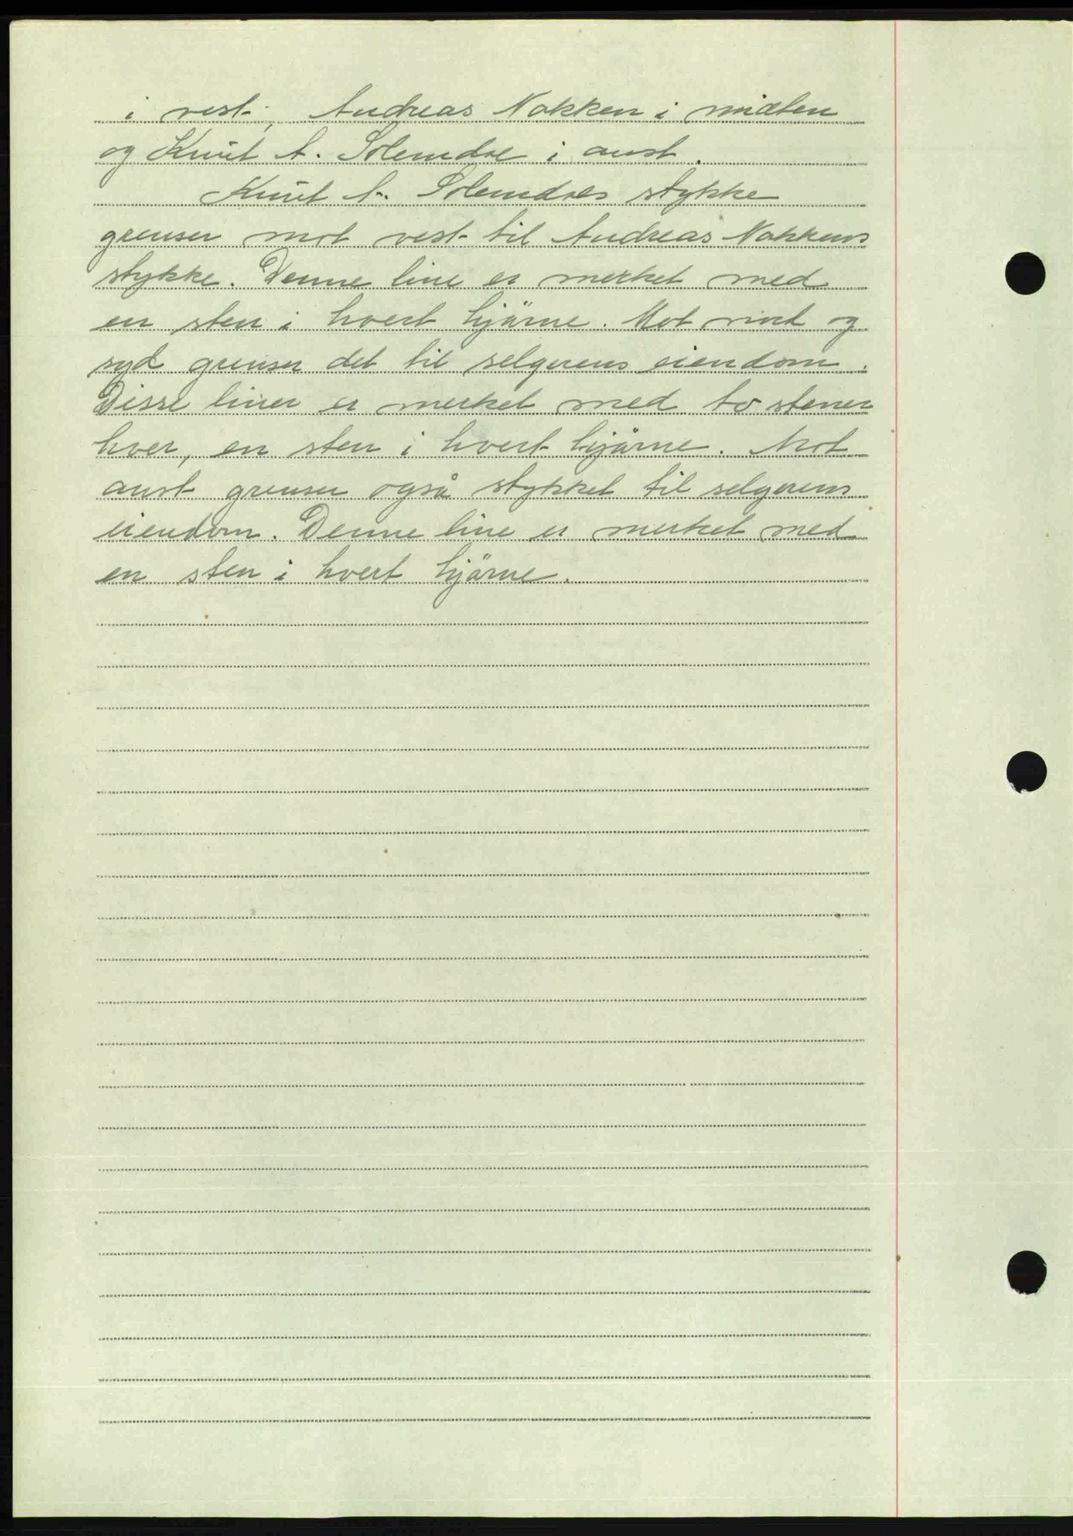 i vest, Andreas Nakken i midten
og Knut A. Solemdal i aust.
Knut A. Solemdals stykke
grenser mot vest til Andreas Nakkens
stykke. Denne line er merket med
en sten i hvert hjärne. Mot nord og
syd grenser det til selgerens eiendom.
Disse liner er merket med to stener
hver, en sten i hvert hjärne. Mot
aust grenser også stykket til selgerens
eiendom. Denne line er merket med
en sten i hvert hjärne.